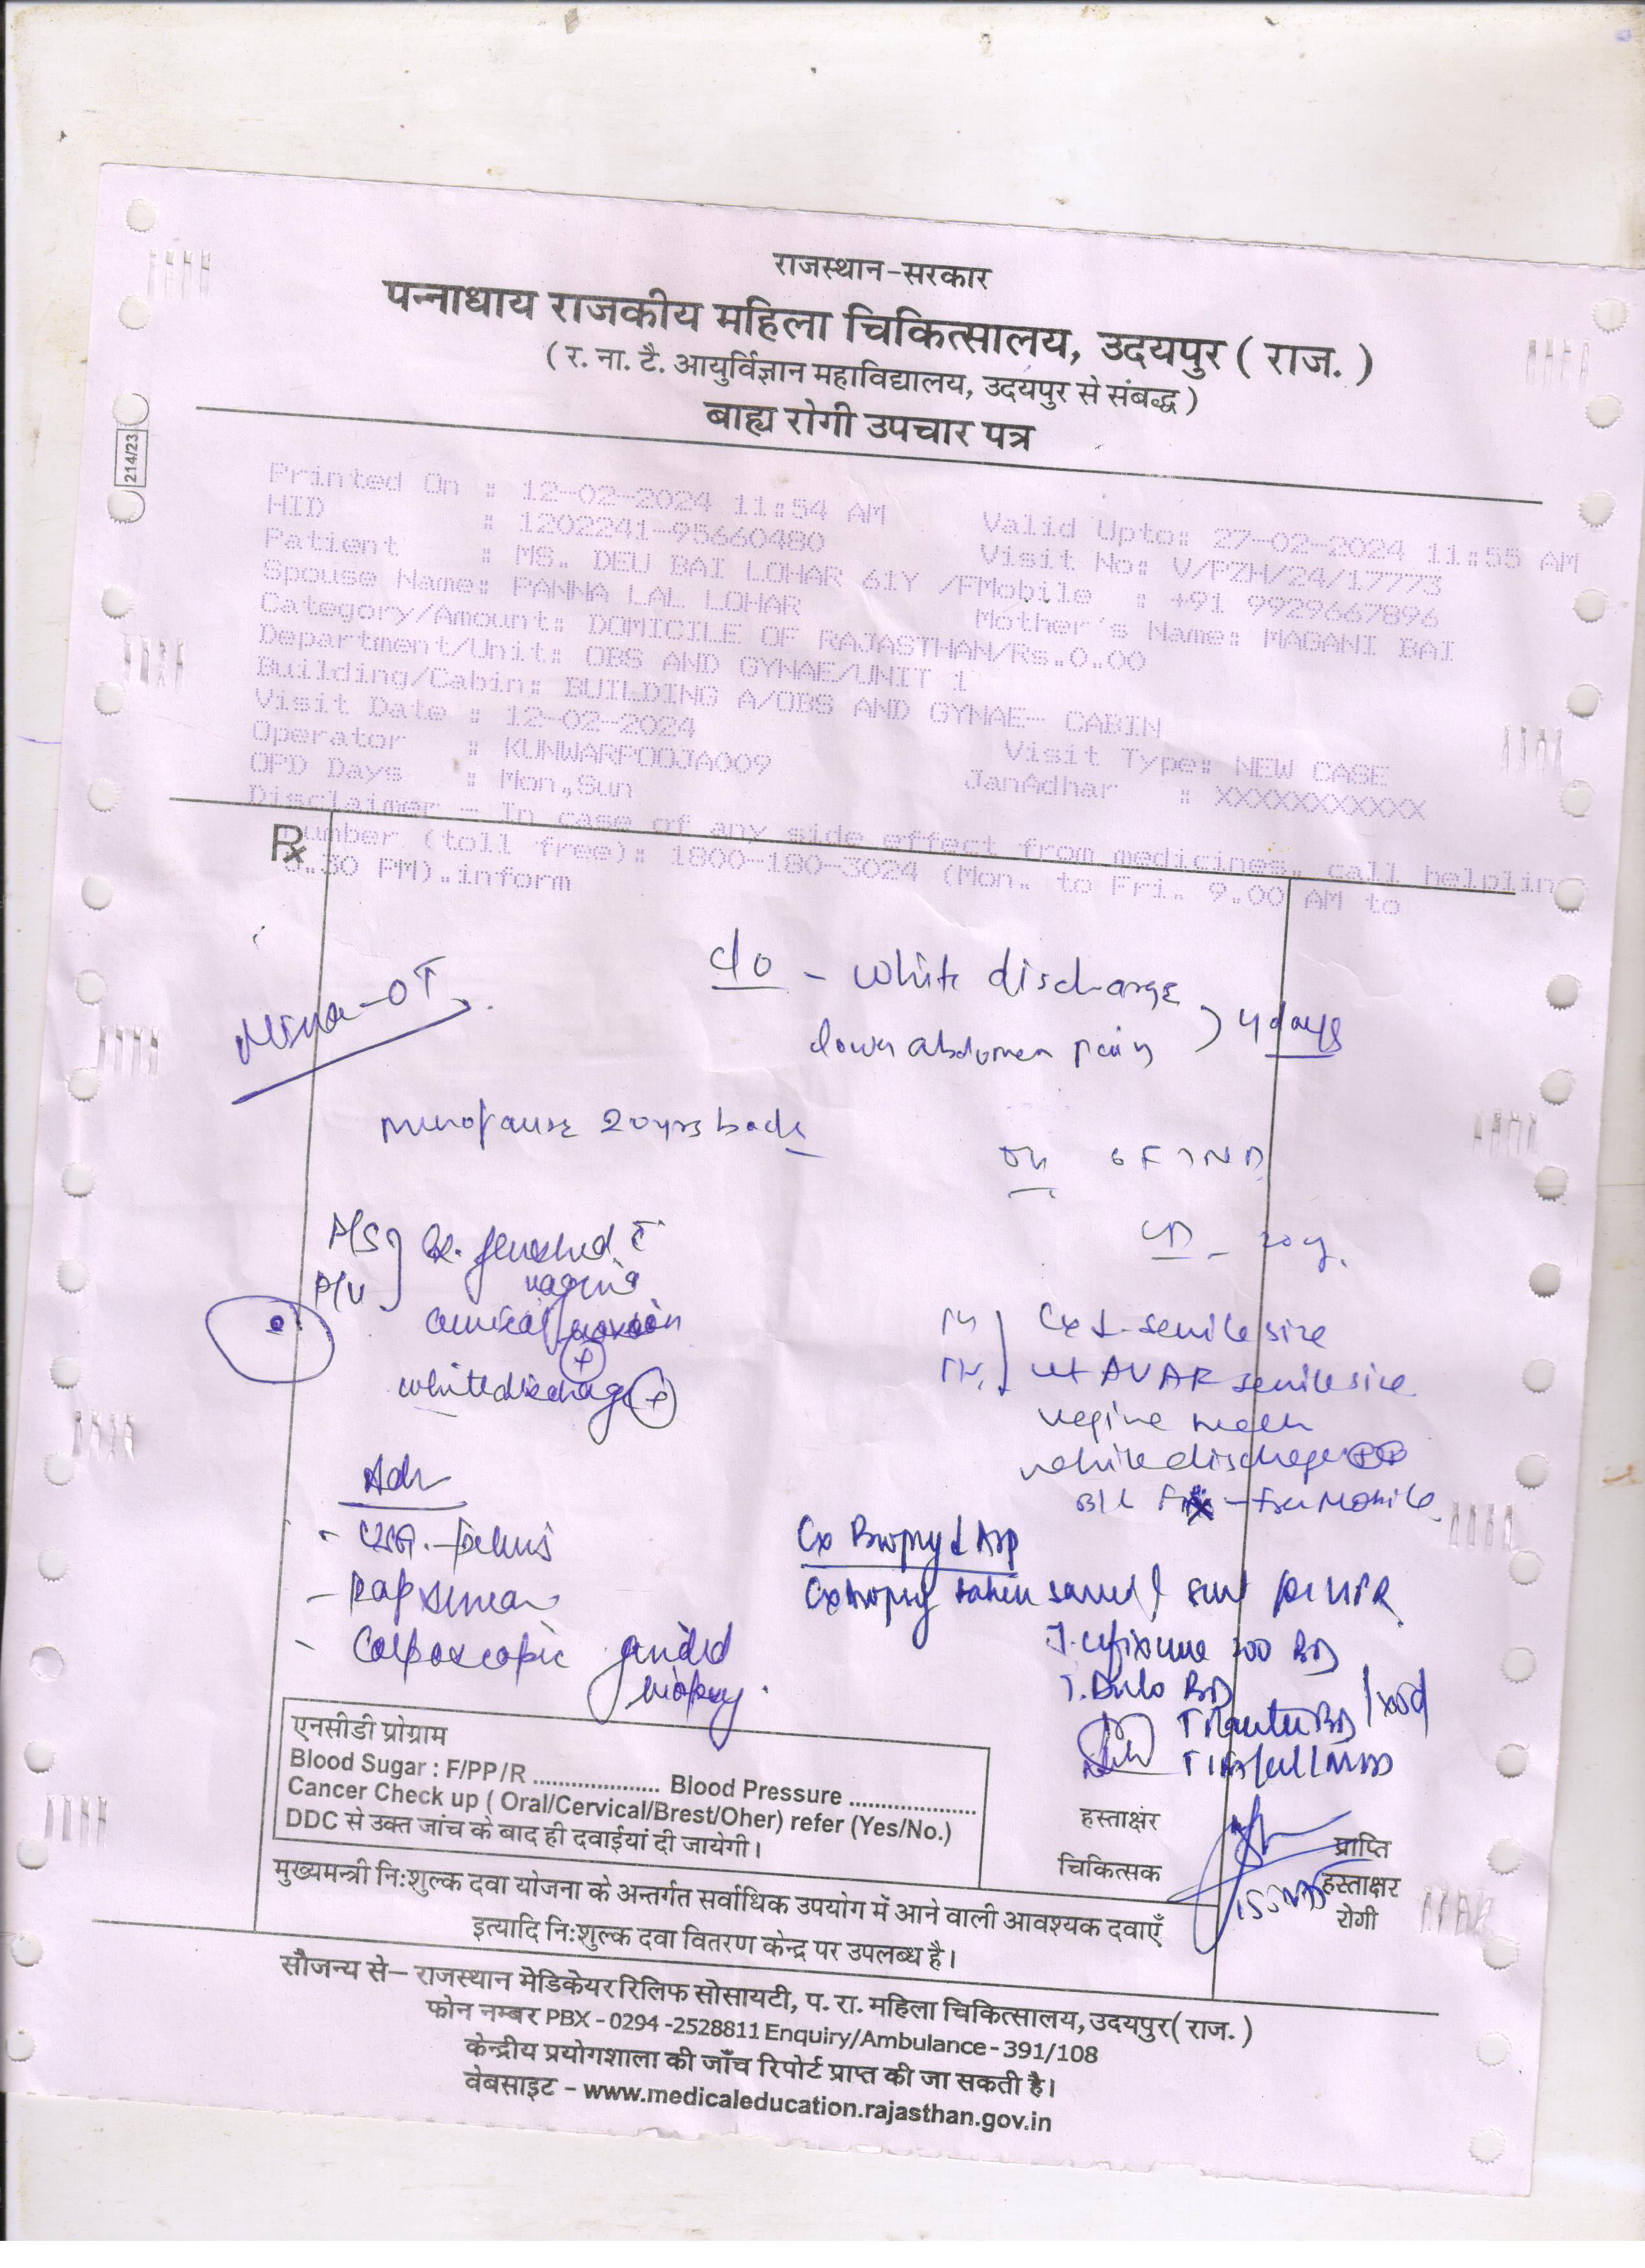 राजस्थान-सरकार
पन्नाधाय राजकीय महिला चिकित्सालय, उदयपुर ( राज. )
( र. ना. टै. आयुर्विज्ञान महाविद्यालय, उदयपुर से संबद्ध )
बाह्य रोगी उपचार पत्र
214/23
Printed On : 12-02-2024 11:54 AM Valid Upto: 27-02-2024 11:55 AM
HID : 1202241-95660480 Visit No: V/PZH/24/17773
Patient : MS. DEU BAI LOHAR 61Y /FMobile : +91 9929667896
Spouse Name: PANNA LAL LOHAR Mother's Name: MAGANI BAI
Category/Amount: DOMICILE OF RAJASTHAN/Rs.0.00
Department/Unit: OBS AND GYNAE/UNIT 1
Building/Cabin: BUILDING A/OBS AND GYNAE- CABIN
Visit Date : 12-02-2024 Visit Type: NEW CASE
Operator : KUNWARPOOJA009 JanAdhar : XXXXXXXXXXX
OPD Days : Mon,Sun
Disclaimer - In case of any side effect from medicines, call helplin
number (toll free): 1800-180-3024 (Mon. to Fri. 9.00 AM to
5.30 PM).inform
Rx
c/o - white discharge
lower abdomen pain ) 4 days
Minor-OT
menopause 20 yrs back
OH 6F7ND
LD - 20y.
P/S
P/V
vagina
cervical
white discharge (+)
Cx senile size
ut AVAF senile size
white discharge
B/L Fx - free mobile
Adv
- USG - pelvis
- Pap smear
- Colposcopic guided
biopsy.
Cx Biopsy
Cx biopsy taken & sent for HPR
T. cefixime 200 BD
BD
एनसीडी प्रोग्राम
Blood Sugar : F/PP/R .................... Blood Pressure ....................
Cancer Check up ( Oral/Cervical/Brest/Oher) refer (Yes/No.)
DDC से उक्त जांच के बाद ही दवाईयां दी जायेगी।
हस्ताक्षर
चिकित्सक
प्राप्ति
हस्ताक्षर
रोगी
मुख्यमन्त्री निःशुल्क दवा योजना के अन्तर्गत सर्वाधिक उपयोग में आने वाली आवश्यक दवाएँ
इत्यादि निःशुल्क दवा वितरण केन्द्र पर उपलब्ध है।
सौजन्य से– राजस्थान मेडिकेयर रिलिफ सोसायटी, प. रा. महिला चिकित्सालय, उदयपुर( राज. )
फोन नम्बर PBX - 0294 -2528811 Enquiry/Ambulance - 391/108
केन्द्रीय प्रयोगशाला की जाँच रिपोर्ट प्राप्त की जा सकती है।
वेबसाइट – www.medicaleducation.rajasthan.gov.in